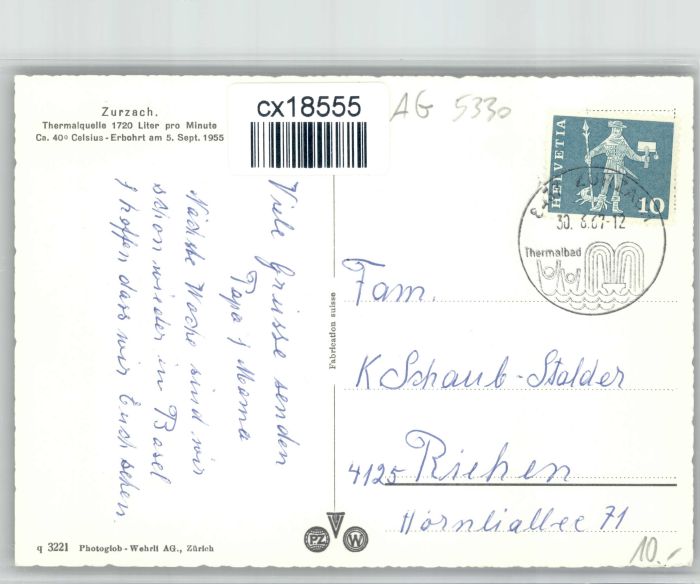 Zurzach.
Thermalquelle 1720 Liter pro Minute
Ca. 40° Celsius - Erbohrt am 5. Sept. 1955
cx18555
AG 5330
HELVETIA
10
30. 8.67-12
Thermalbad
Viele Grüsse senden
Papa & Mama
Nächste Woche sind wir
schon wieder in Basel
& hoffen dass wir Euch sehen.
Fabrication suisse
Fam.
K Schaub-Stalder
4125 Riehen
Hörnliallee 71
q 3221 Photoglob-Wehrli AG., Zürich
PZ
W
10.-